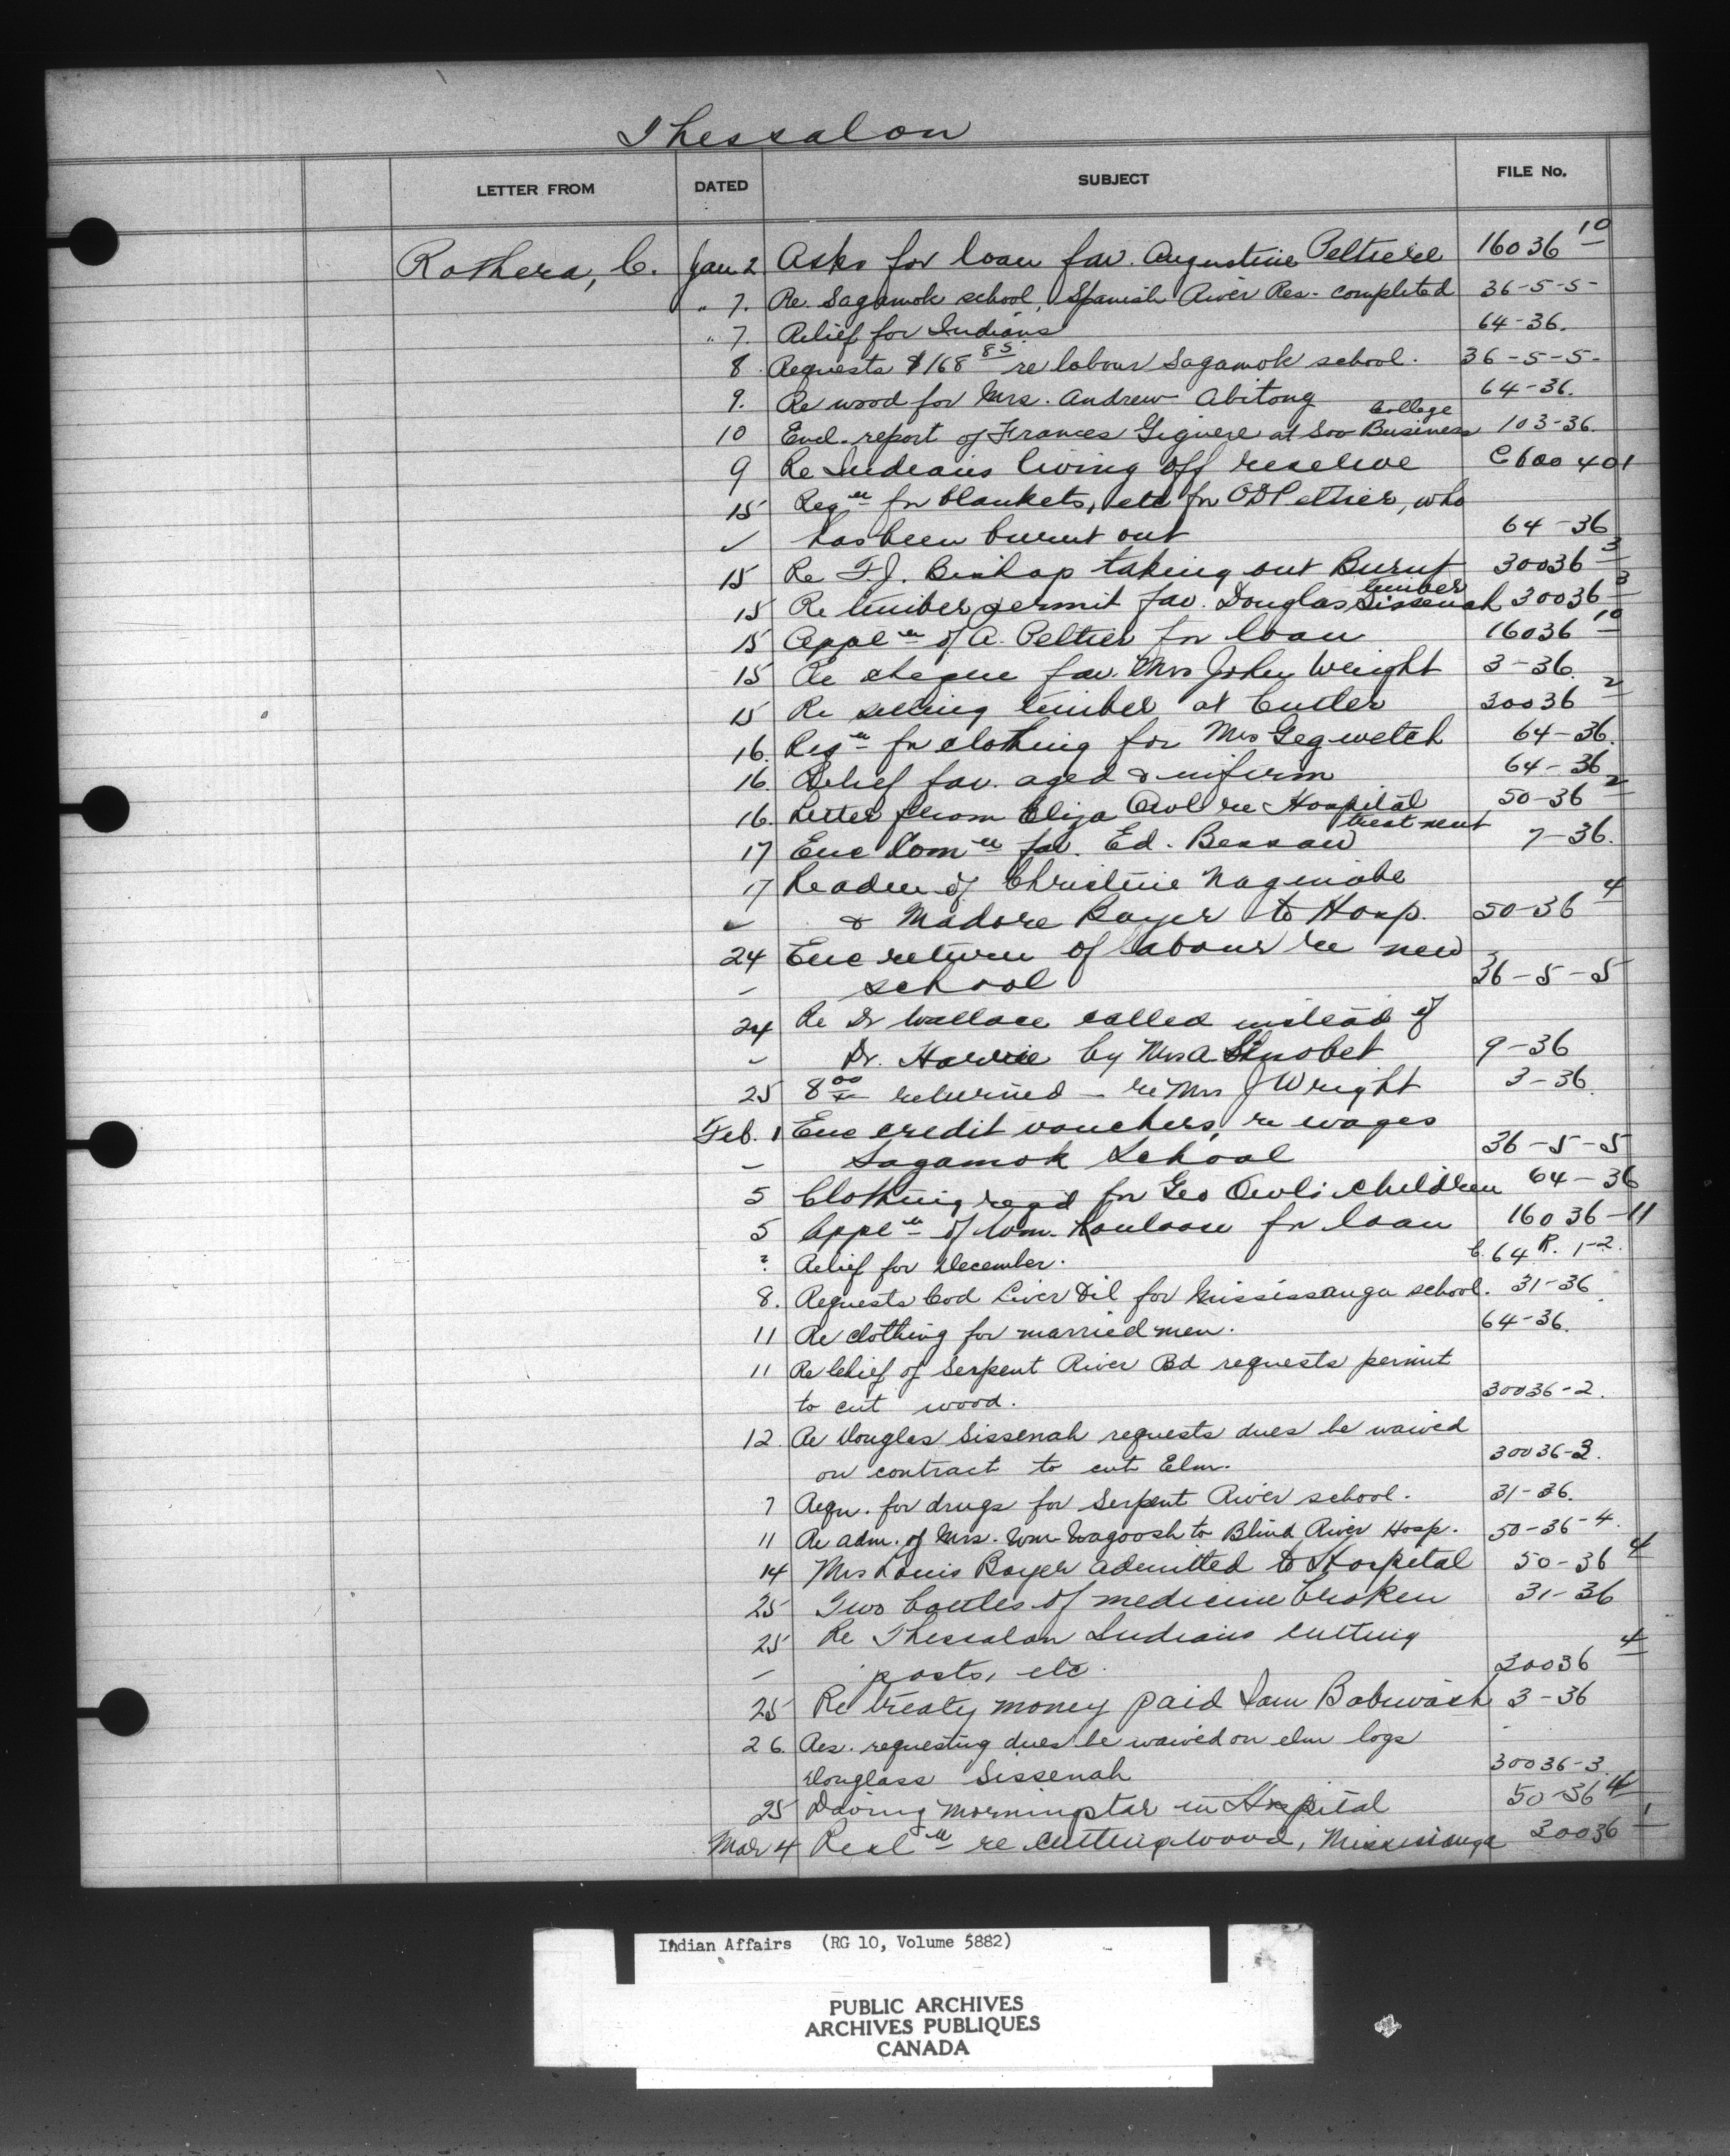 Thessalon
LETTER FROM DATED SUBJECT FILE No.
Rothera, C. Jan 2 Asks for loan fav. Augustine Peltier 16036-10
" 7. Re Sagamok school, Spanish River Res. completed 36-5-5-
" 7. Relief for Indians 64-36.
8 Requests $168 85 re labour Sagamok school. 36-5-5-
9. Re wood for Mrs. Andrew Abitong 64-36.
10 Encl. report of Frances Giguere at Soo Business College 103-36.
9 Re Indians living off reserve C 600 401
15 Reqn for blankets, etc for Peltier, who
✓ has been burnt out 64-36
15 Re F.J. Bishop taking out Burnt timber 30036-3
15 Re timber permit fav. Douglas Sissenah 30036-3
15 Appln of A. Peltier for loan 16036-10
15 Re cheque fav. Mrs John Wright 3-36.
15 Re selling timber at Cutler 30036-2
16. Reqn for clothing for Mrs Gegwetch 64-36.
16 Relief fav. aged & infirm 64-36
16. Letter from Eliza Owl re Hospital treatment 50-36-2
17 Enc Comn fav. Ed. Bessaw 7-36.
17 Re adm of Christine Nageniabe
✓ & Madore Boyer to Hosp. 50-36-4
24 Enc return of labour re new
– school 36-5-5
24 Re Dr Wallace called instead of
– Dr. Harvie by Mrs A 9-36
25 8 00 returned – re Mrs J Wright 3-36.
Feb. 1 Enc credit vouchers, re wages
– Sagamok School 36-5-5
5 Clothing reqd for Geo Owl's children 64-36
5 Appln of Wm. for loan 16036-11
? Relief for December. C. 64 R. 1-2.
8. Requests Cod Liver Oil for Mississauga school. 31-36
11 Re clothing for married men. 64-36.
11 Re Chief of Serpent River Bd requests permit
to cut wood. 30036-2.
12. Re Douglas Sissenah requests dues be waived
on contract to cut Elm. 30036-3.
7 Reqn. for drugs for Serpent River school. 31-36.
11 Re adm. of Mrs. Wm Wagoosh to Blind River Hosp. 50-36-4.
14 Mrs Louis Boyer admitted to Hospital 50-36-4
25 Two bottles of medicine broken 31-36
25 Re Thessalon Indians cutting
– posts, etc. 30036-4
25 Re treaty money paid Sam Bobiwash 3-36
26. Res. requesting dues be waived on elm logs
Douglass Sissenah 30036-3.
25 Morningstar in Hospital 50-36-4
Mar 4 Resln re cutting wood, Mississauga 30036-1
Indian Affairs (RG 10, Volume 5882)
PUBLIC ARCHIVES
ARCHIVES PUBLIQUES
CANADA